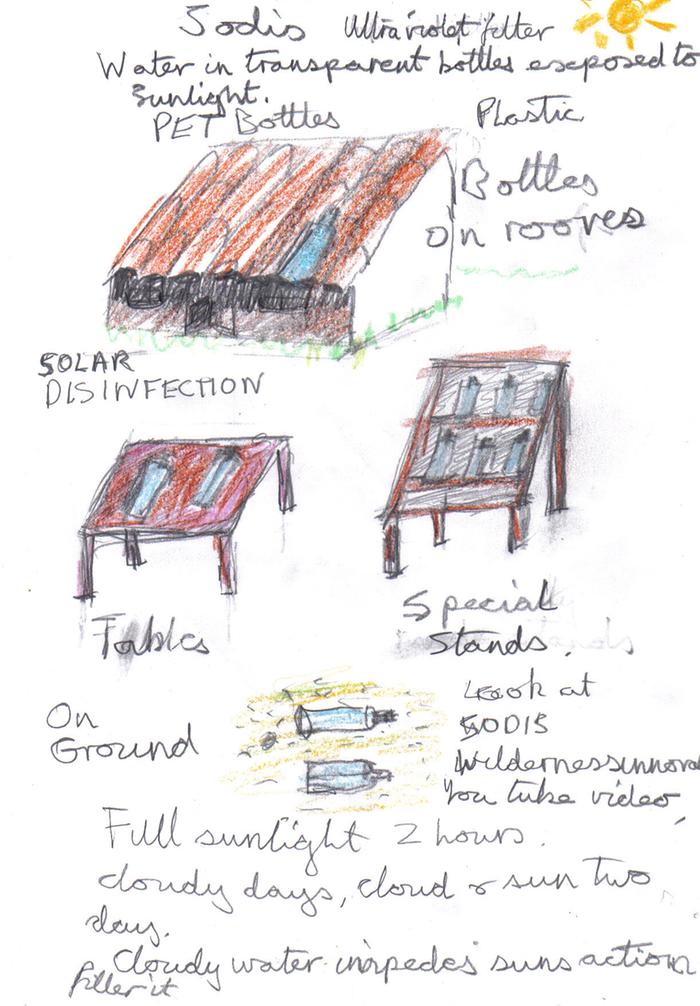 Sodis Ultraviolet filter
Water in transparent bottles exposed to
Sunlight.
PET Bottles Plastic
Bottles
on rooves
SOLAR
DISINFECTION
Tables
Special
Stands.
On
Ground
Look at
SODIS
You tube video,
Full sunlight 2 hours.
cloudy days, cloud & sun Two
day.
Cloudy water impedes suns action
filter it